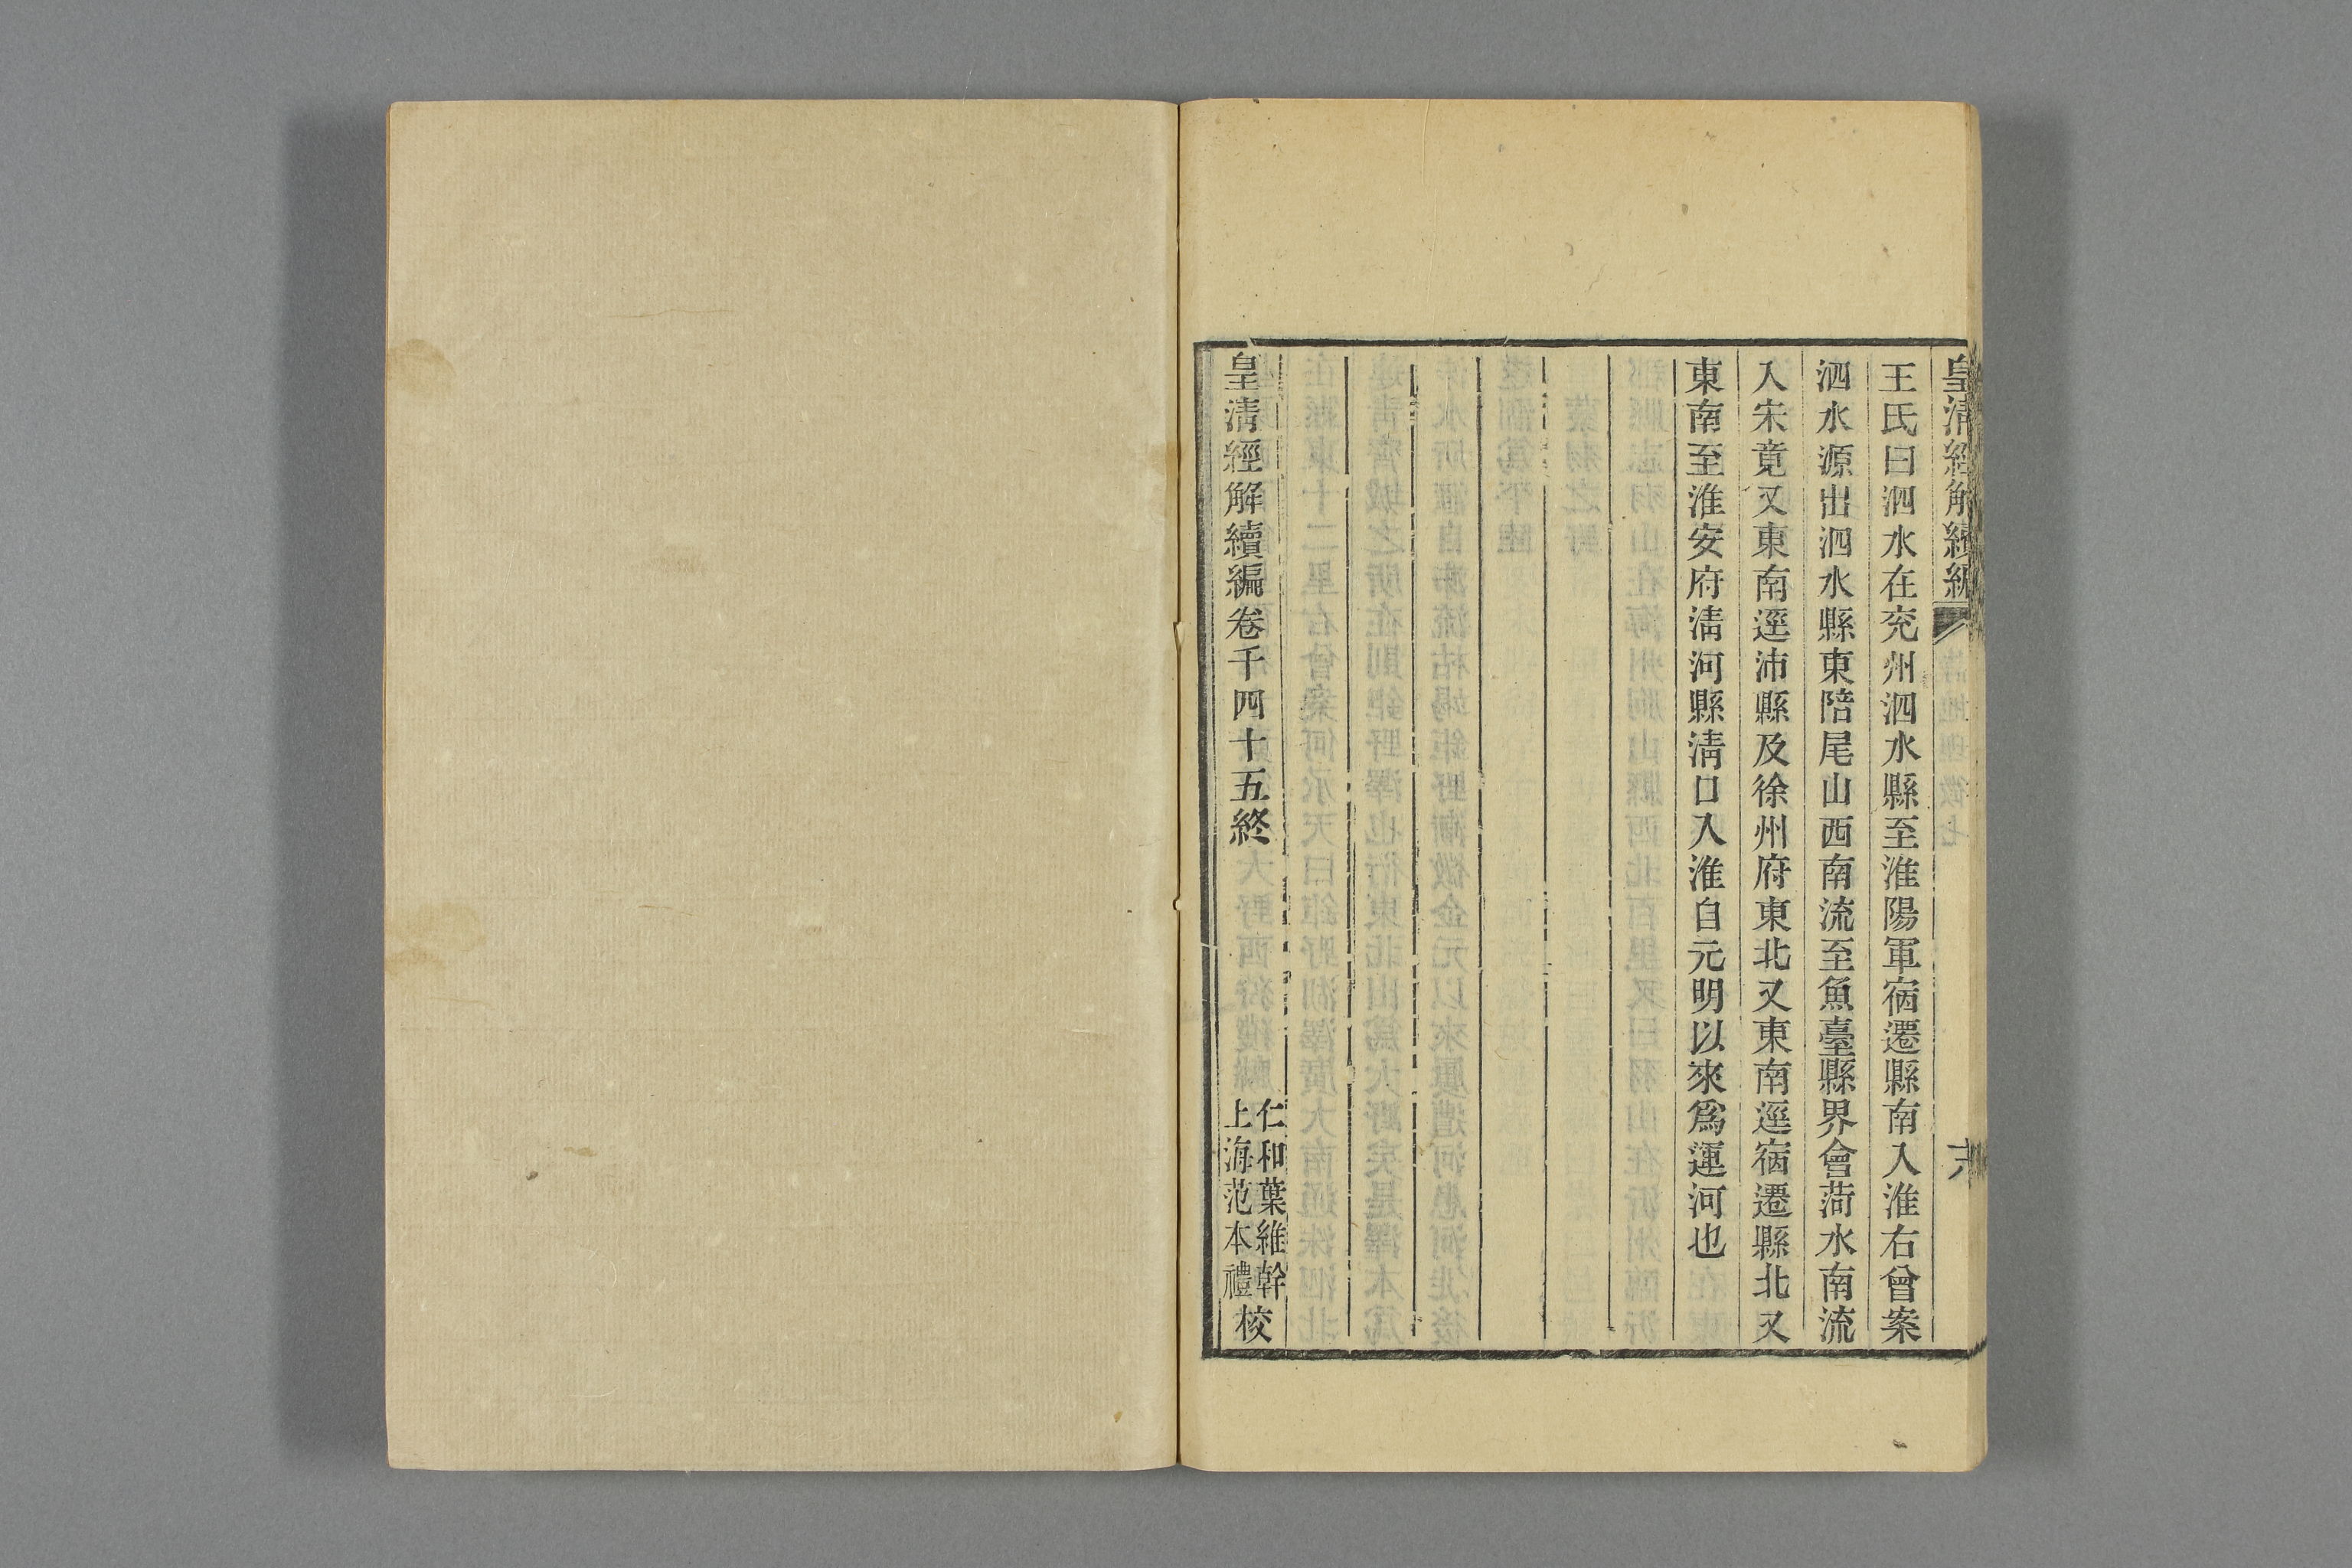 皇清經解續編
六
王氏曰泗水在兖州泗水縣至淮陽軍宿遷縣南入淮右曾案
泗水源出泗水縣東陪尾山西南流至魚臺縣界會菏水南流
入宋竟又東南逕沛縣及徐州府東北又東南逕宿遷縣北又
東南至淮安府清河縣清口入淮自元明以來爲運河也
皇清經解續編卷千四十五終
仁和葉維幹
上海范本禮
校